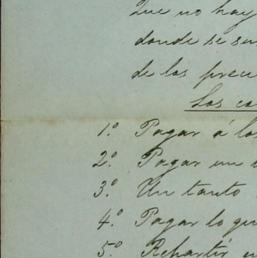 Que no hay
donde se su
de los preu
Los co
1.º Pagar á lo
2.º Pagar un
3.º Un tanto
4.º Pagar lo qu
5.º Repartir